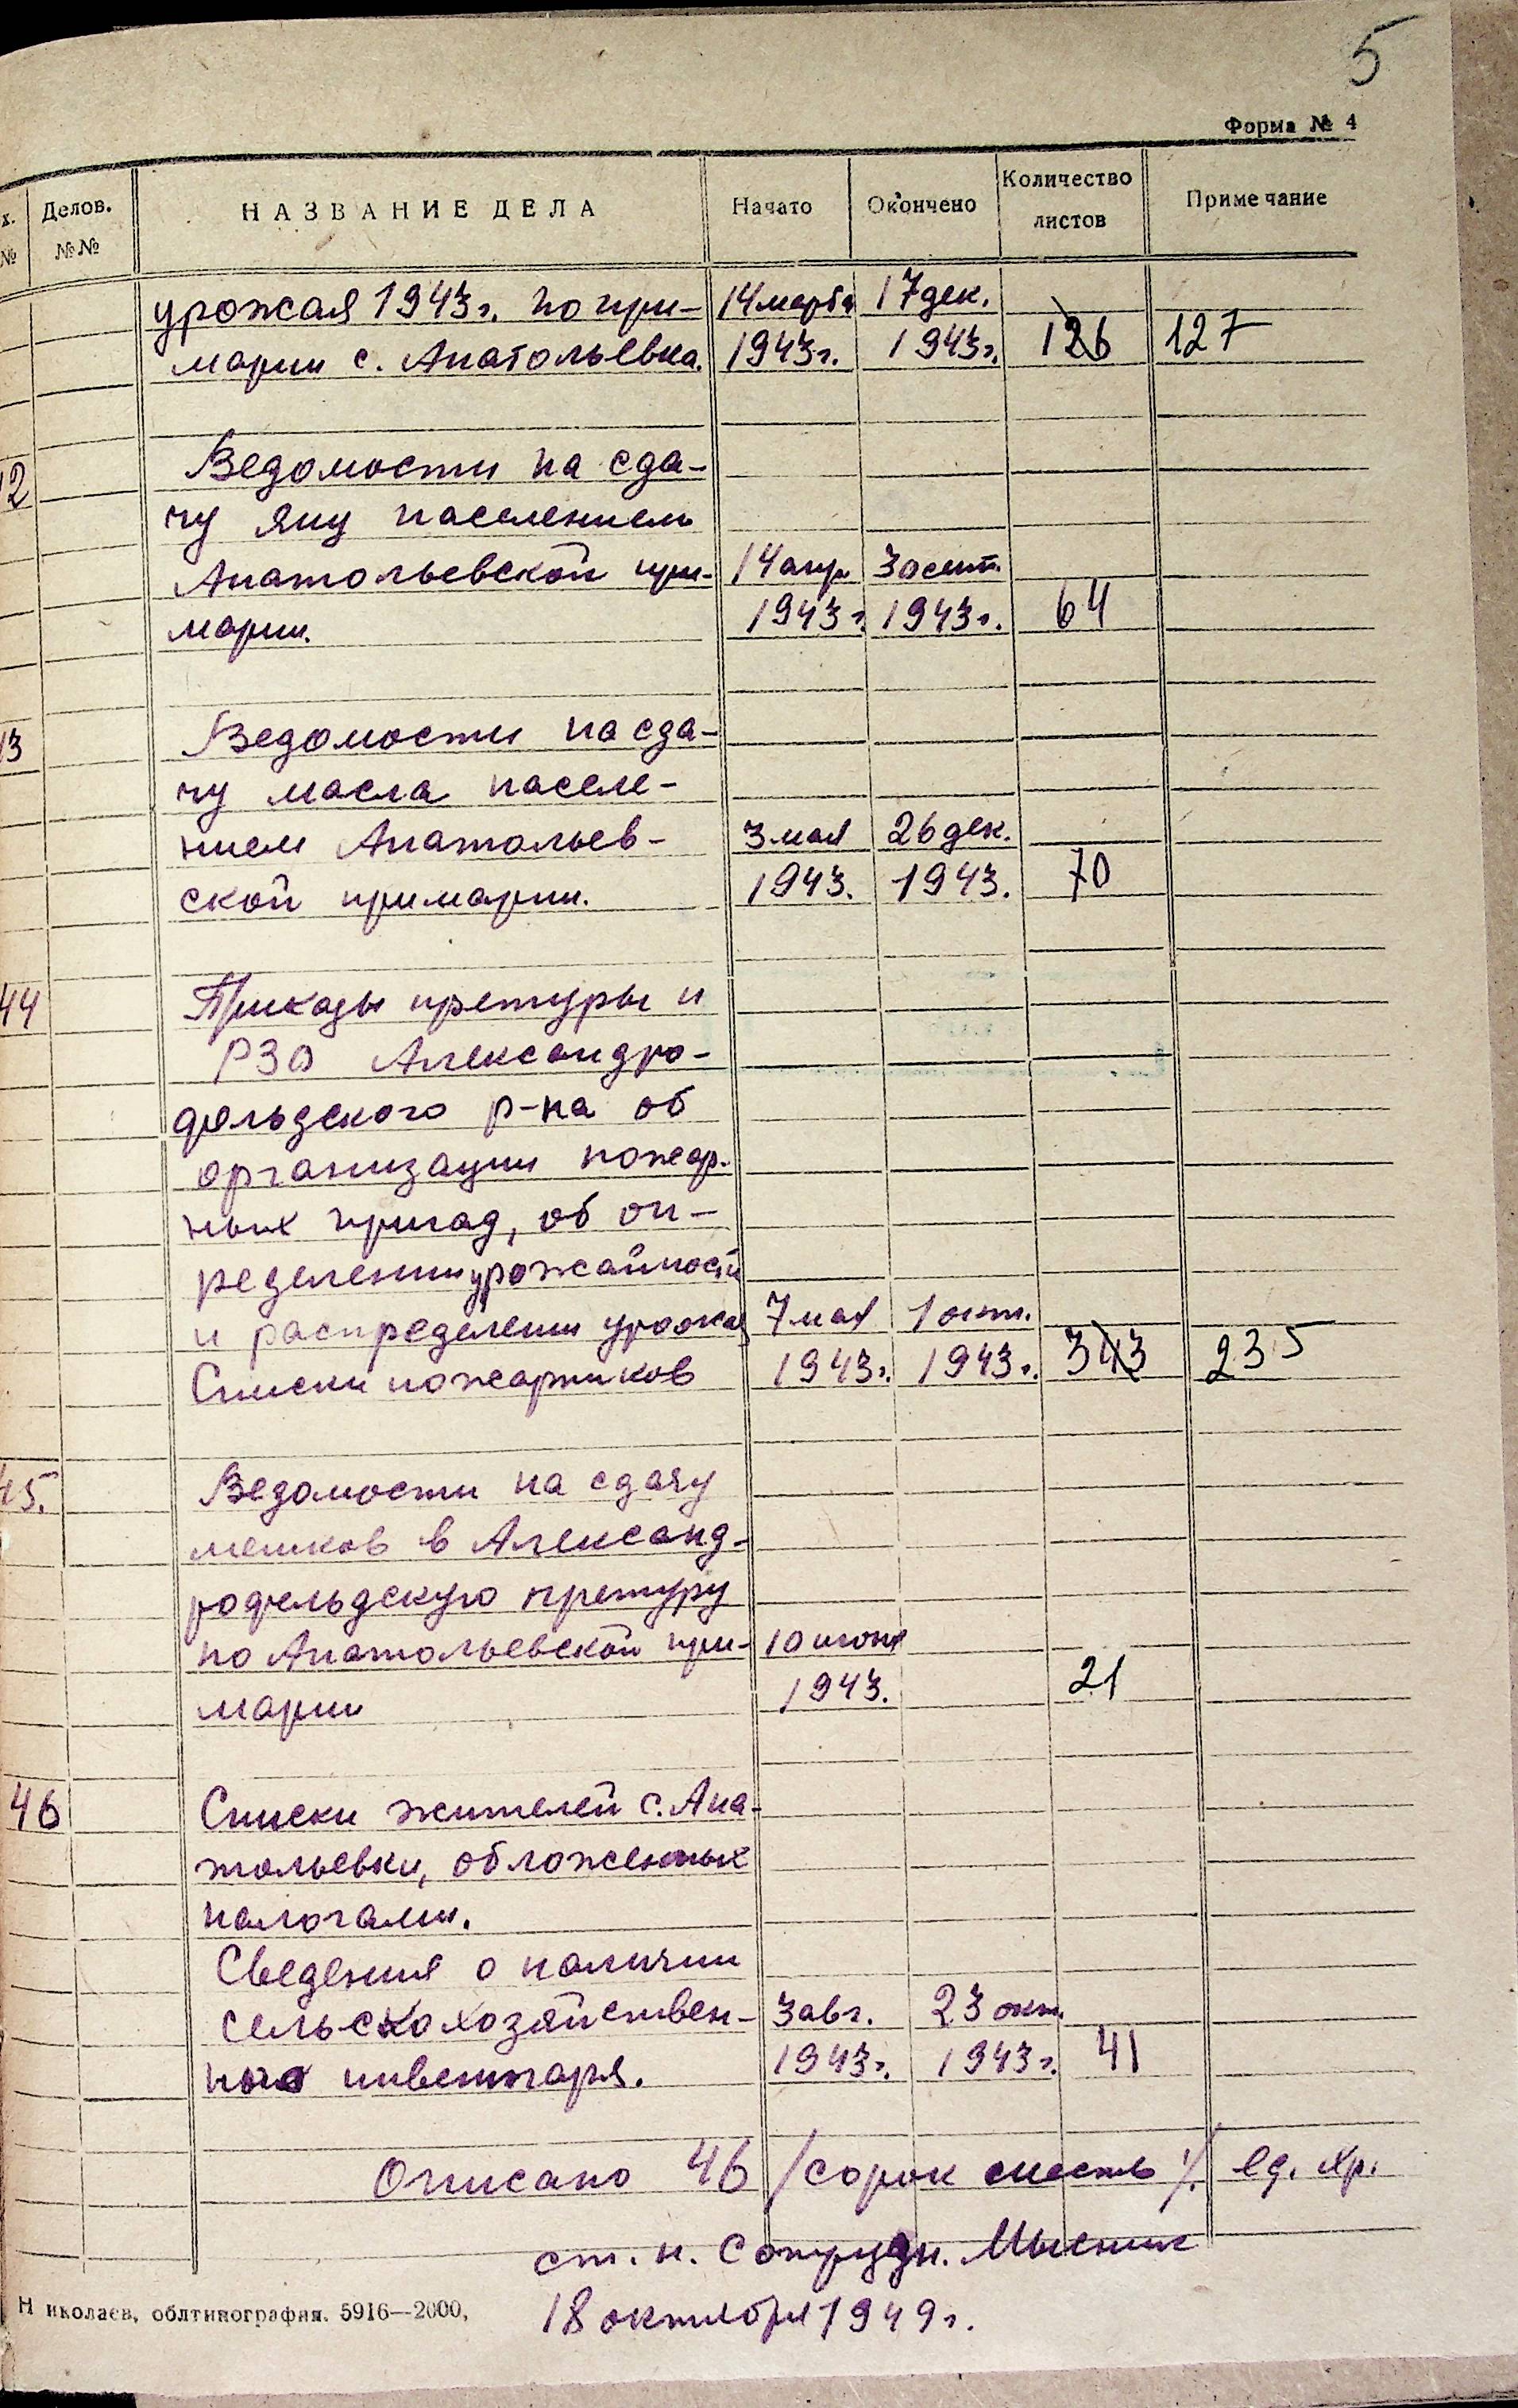 5
Форма № 4
х. № Делов. №№ НАЗВАНИЕ ДЕЛА Начато Окончено Количество листов Примечание
урожая 1943г. по при- 14 марта 17 дек.
марии с. Анатольевка. 1943г. 1943г. 126 127
12 Ведомости на сда-
чу яиц населением
Анатольевской при- 14 апр. 30 сент.
марии. 1943г. 1943г. 64
13 Ведомости на сда-
чу масла населе-
нием Анатольев- 3 мая 26 дек.
ской примарии. 1943. 1943. 70
44 Приказы претуры и
РЗО Александро-
фельдского р-на об
организации пожар-
ных бригад, об оп-
ределении урожайности
и распределении урожая 7 мая 1 окт.
Списки пожарников 1943г. 1943г. 343 235
45. Ведомости на сдачу
мешков в Александ-
рофельдскую претуру
по Анатольевской при- 10 июня
марии 1943. 21
46 Списки жителей с. Ана-
тольевки, обложенных
налогами.
Сведения о наличии
сельскохозяйствен- 3 авг. 23 окт.
ного инвентаря. 1943г. 1943г. 41
Описано 46 /сорок шесть/. ед. хр.
ст. н. сотрудн.
18 октября 1949г.
Николаев, облтипография. 5916—2000,